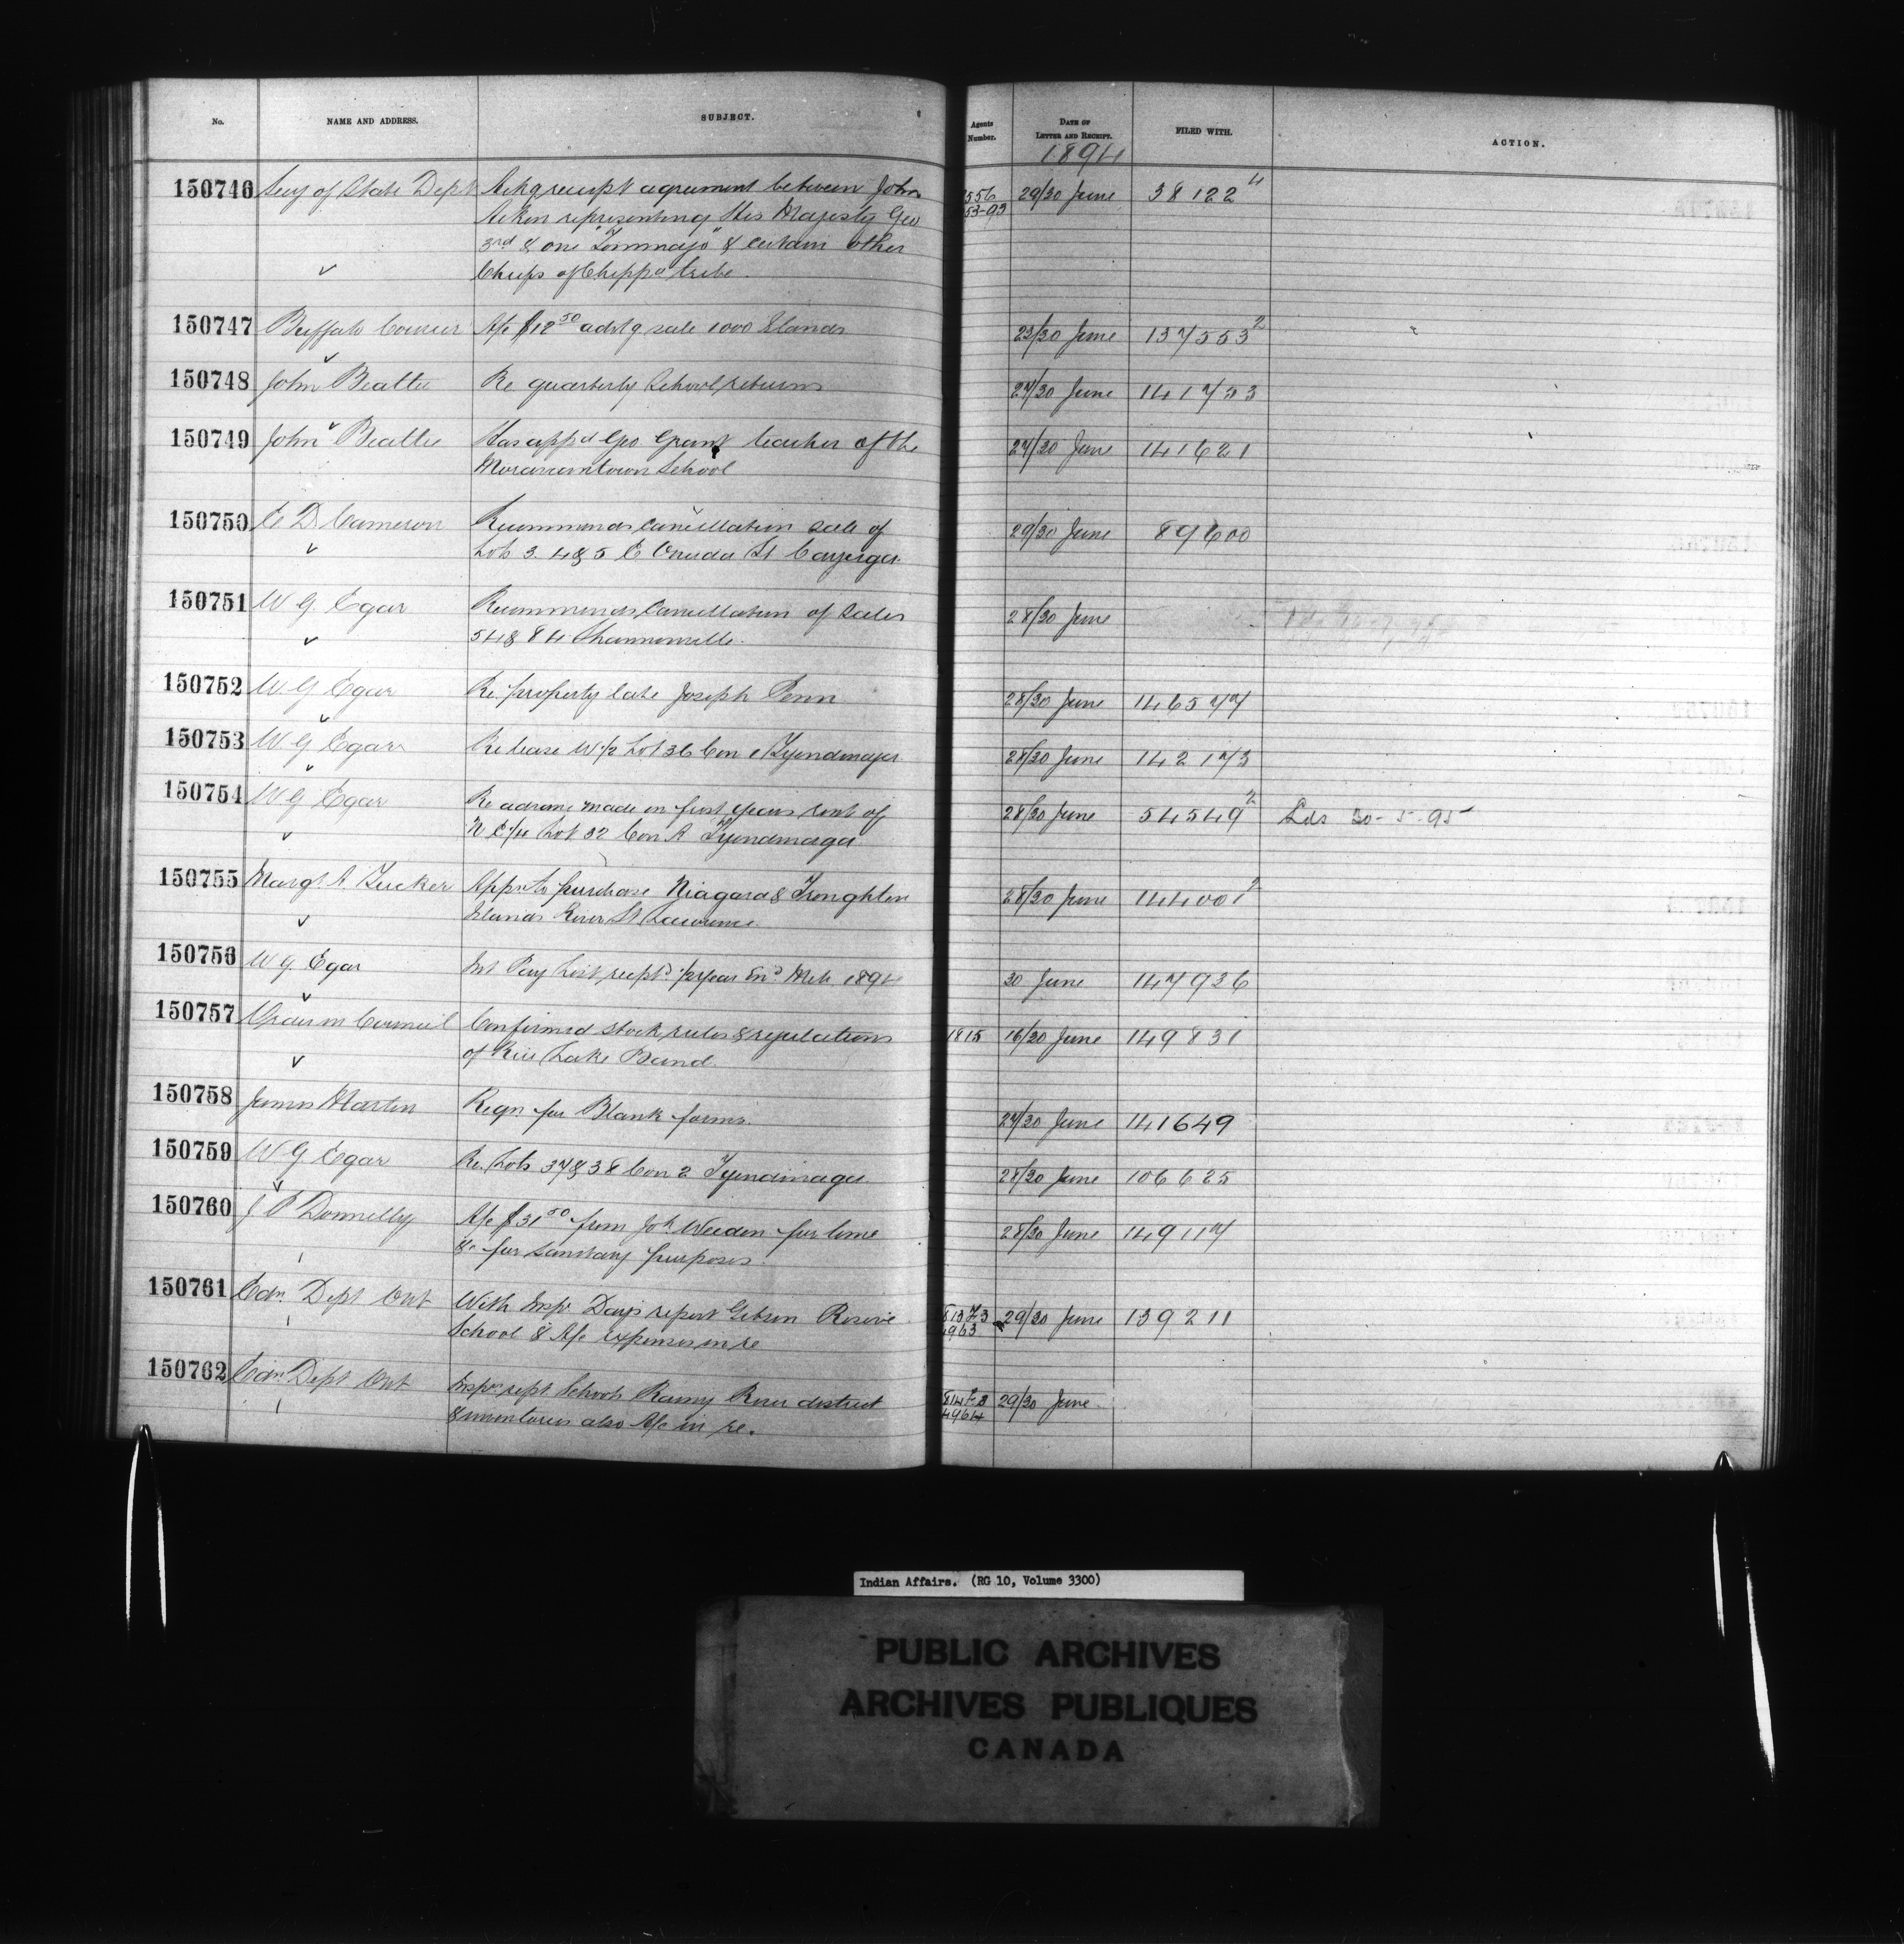 No. NAME AND ADDRESS. SUBJECT. Agents Number. DATE OF LETTER AND RECEIPT. FILED WITH. ACTION.
1894
150746 Secy of State Dept Ackg receipt agreement between John 29/30 June 38122⁴
556
53-93
Aiken representing His Majesty Geo
3rd & one "Tommago" & certain other
Chiefs of Chippa tribe.
150747 Buffalo Courier A/c $12.50 advtg sale 1000 Islands 23/30 June 137553²
150748 John Beattie Re quarterly School returns 27/30 June 141753
150749 John Beattie Has appd Geo Grant teacher of the 27/30 June 141621
Moraviantown School
150750 E D Cameron Recommends cancellation sale of 29/30 June 89600
Lots 3. 4 & 5 E Oneida St Cayuga.
150751 W G. Egar Recommends Cancellation of Sales 28/30 June
54 & 84 Shannonville.
150752 W. G Egar Re property late Joseph Penn 28/30 June 146577
150753 W G Egar Re lease W 1/2 Lot 36 Con 1 Tyendinaga 28/30 June 142173
150754 W G Egar Re advance made on first years rent of 28/30 June 54549² Lds 30-5-95
N E 1/4 Lot 32 Con A Tyendinaga
150755 Margt A. Tucker Appn to purchase Niagara & Troughton 28/30 June 144001²
Islands River St Lawrence.
150756 W G. Egar Int Pay List recptd 1/2 year End. Mch 1894 30 June 147936
150757 Order in Council Confirmed stock rules & regulations 1815 16/30 June 149831
of Rice Lake Band.
150758 James Martin Reqn for Blank forms. 27/30 June 141649
150759 W G Egar Re. Lots 37 & 38 Con 2 Tyendinaga 28/30 June 106625
150760 J P Donnelly A/c $31.50 from Jok Weedon for lime 28/30 June 149117
&c for sanitary purposes.
150761 Edn. Dept Ont With Insp Day's report Gibson Reserve 813 Z 3 29/30 June 139211
4963
School & A/c expenses in re
150762 Edn. Dept Ont Inspr rept. Schools Rainy River district 29/30 June
4964
also A/c in re.
Indian Affairs. (RG 10, Volume 3300)
PUBLIC ARCHIVES
ARCHIVES PUBLIQUES
CANADA